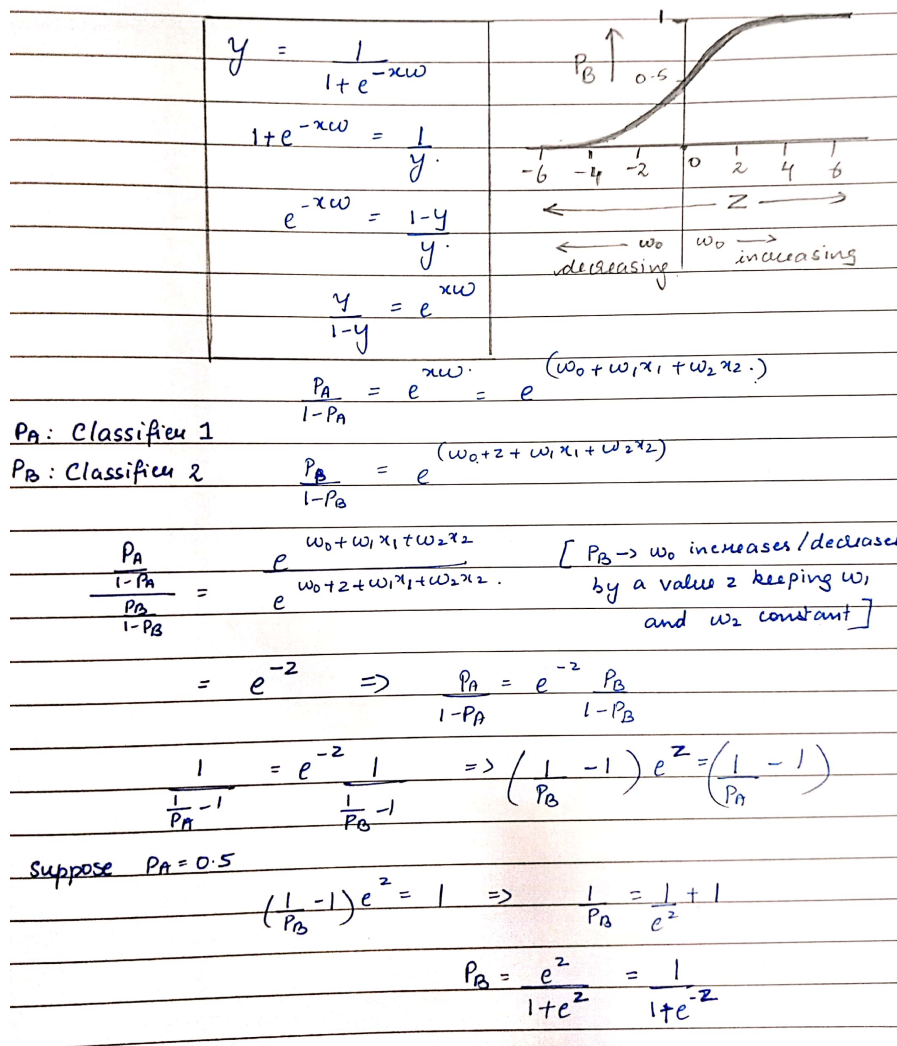 y = 1 / (1+e^(-xw))
1+e^(-xw) = 1/y.
e^(-xw) = (1-y)/y.
y/(1-y) = e^(xw)
1
P_B ↑ 0.5
-6 -4 -2 0 2 4 6
← Z →
← w₀ decreasing | w₀ → increasing
P_A/(1-P_A) = e^(xw.) = e^(w₀+w₁x₁+w₂x₂.)
P_A: Classifier 1
P_B: Classifier 2 P_B/(1-P_B) = e^(w₀+z+w₁x₁+w₂x₂)
(P_A/(1-P_A)) / (P_B/(1-P_B)) = e^(w₀+w₁x₁+w₂x₂) / e^(w₀+z+w₁x₁+w₂x₂).
[P_B → w₀ increases/decreases
by a value z keeping w₁
and w₂ constant]
= e^(-z) => P_A/(1-P_A) = e^(-z) P_B/(1-P_B)
1/(1/P_A -1) = e^(-z) 1/(1/P_B -1) => (1/P_B -1) e^z = (1/P_A -1)
Suppose P_A = 0.5
(1/P_B -1) e^z = 1 => 1/P_B = 1/e^z + 1
P_B = e^z/(1+e^z) = 1/(1+e^(-z))